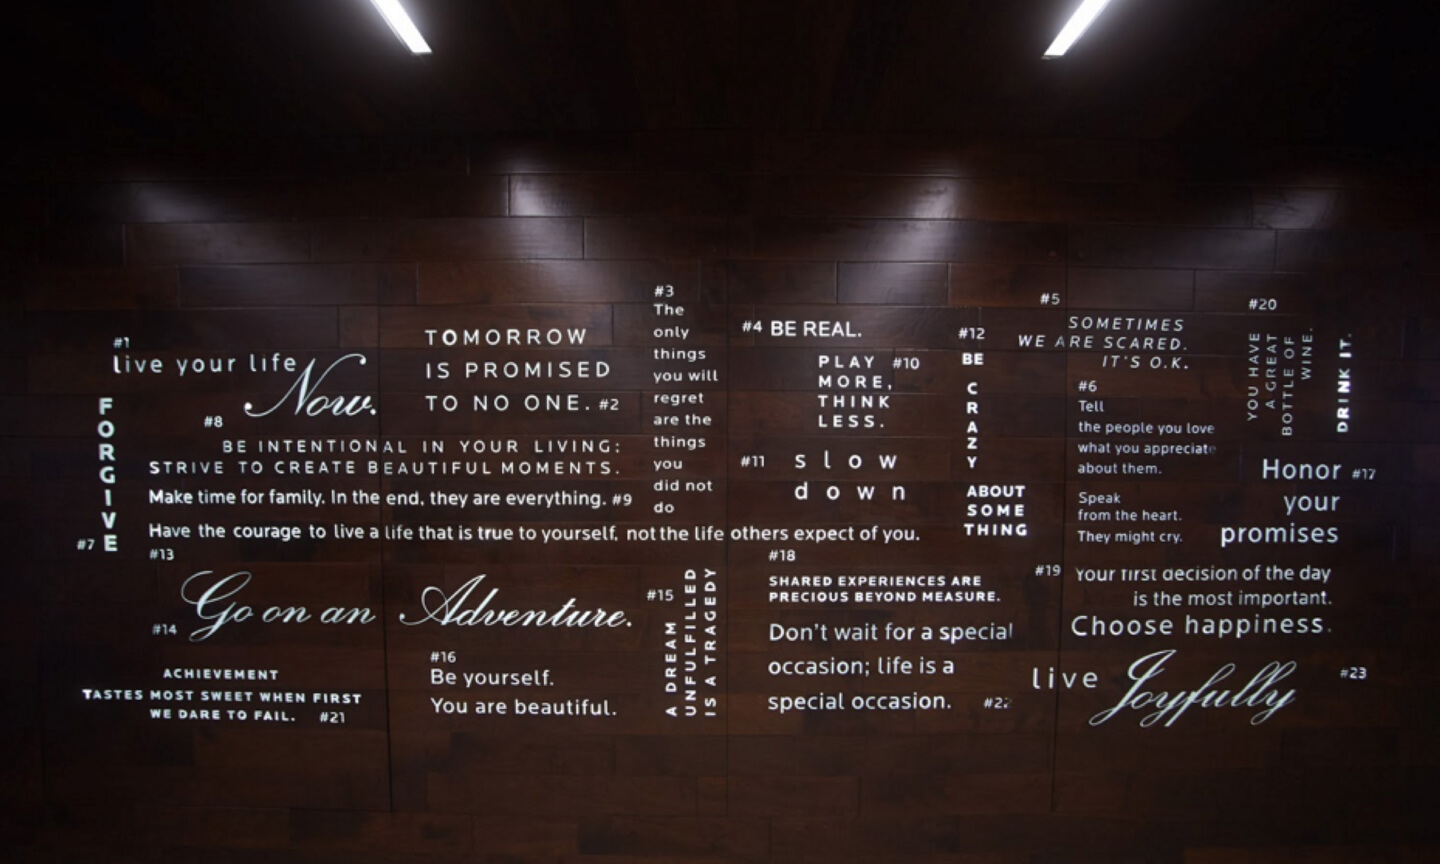 #1
live your life
Now.
TOMORROW
IS PROMISED
TO NO ONE. #2
#3
The
only
things
you will
regret
are the
things
you
did not
do
#4 BE REAL.
#5
SOMETIMES
WE ARE SCARED.
IT'S O.K.
#6
Tell
the people you love
what you appreciate
about them.
Speak
from the heart.
They might cry.
#7 FORGIVE
#8
BE INTENTIONAL IN YOUR LIVING:
STRIVE TO CREATE BEAUTIFUL MOMENTS.
Make time for family. In the end, they are everything. #9
PLAY #10
MORE,
THINK
LESS.
#11 slow
down
#12
BE
CRAZY
ABOUT
SOME
THING
Have the courage to live a life that is true to yourself, not the life others expect of you.
#13
#14 Go on an Adventure.
#15
A DREAM
UNFULFILLED
IS A TRAGEDY
#16
Be yourself.
You are beautiful.
Honor #17
your
promises
#18
SHARED EXPERIENCES ARE
PRECIOUS BEYOND MEASURE.
#19 Your first decision of the day
is the most important.
Choose happiness.
#20
YOU HAVE
A GREAT
BOTTLE OF
WINE.
DRINK IT.
ACHIEVEMENT
TASTES MOST SWEET WHEN FIRST
WE DARE TO FAIL. #21
Don't wait for a special
occasion; life is a
special occasion. #22
live Joyfully #23